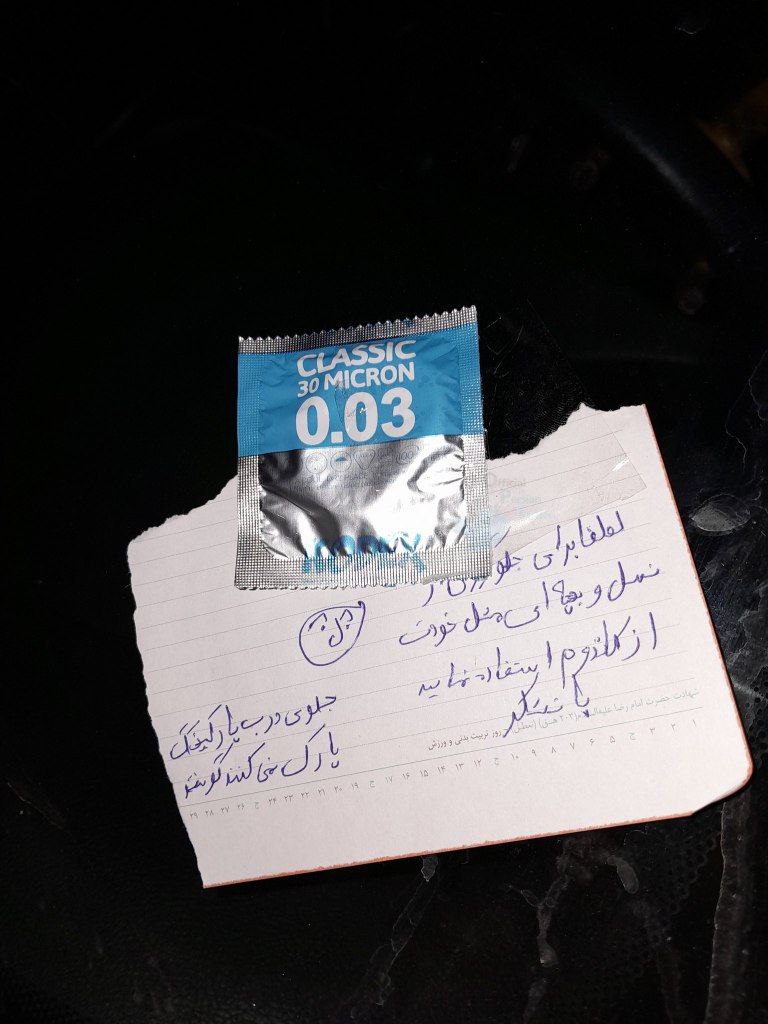 CLASSIC
30 MICRON
0.03
Official
لطفا برای جلوگیری از
نسل و بچه ای مثل خودت
از کاندوم استفاده نمایید
با تشکر
جلوی درب پارکینگ
پارک نمی کنند
شهادت حضرت امام رضا علیه
روز تربیت بدنی و ورزش
۱ ۲ ۳ ج ۵ ۶ ۷ ۸ ۹ ۱۰ ج ۱۲ ۱۳ ۱۴ ۱۵ ۱۶ ۱۷ ج ۱۹ ۲۰ ۲۱ ۲۲ ۲۳ ۲۴ ج ۲۶ ۲۷ ۲۸ ۲۹